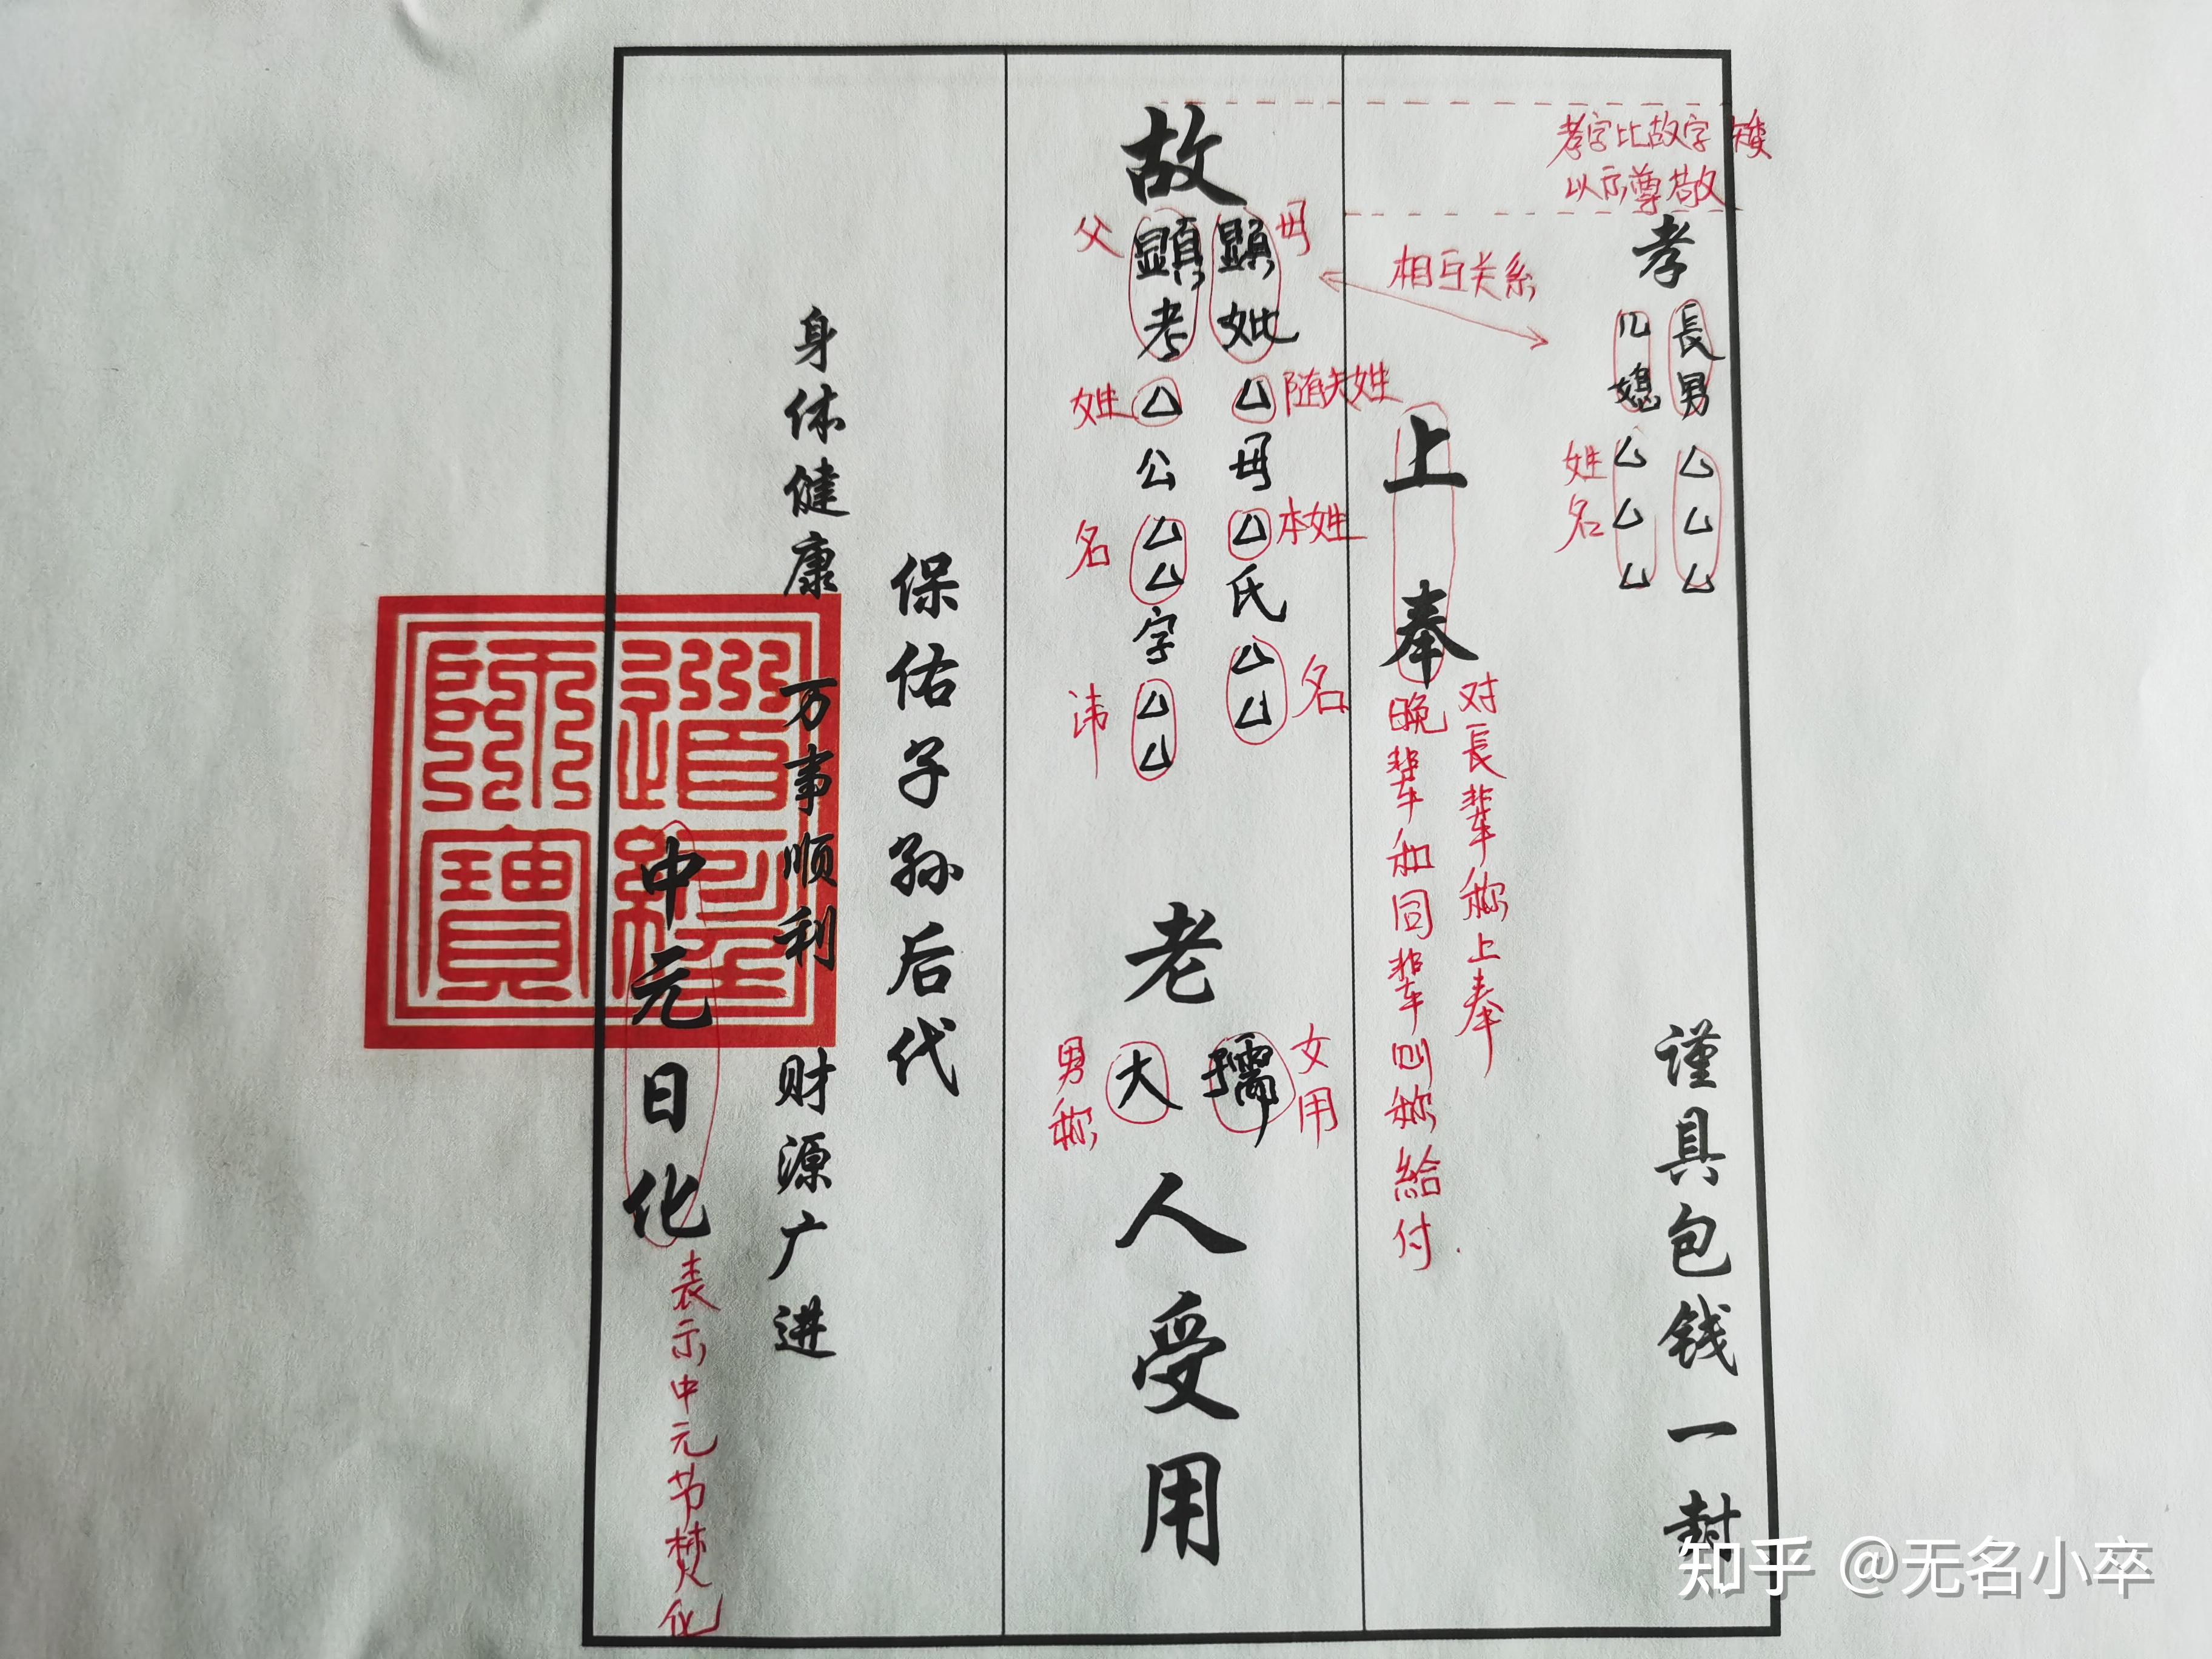 孝字比故字矮
以示尊敬
孝
長男△△△
儿媳△△△
姓名
谨具包钱一封
相互关系
上奉
对長辈称上奉
晚辈和同辈则称给付
故
母
顯妣△母△氏△△
随夫姓
本姓
名
父
顕考△公△△字△△
姓
名
讳
老
孺
女用
大
男称
人受用
保佑子孙后代
身体健康 万事顺利 财源广进
中元日化
表示中元节焚化
道經師寶
知乎 @无名小卒